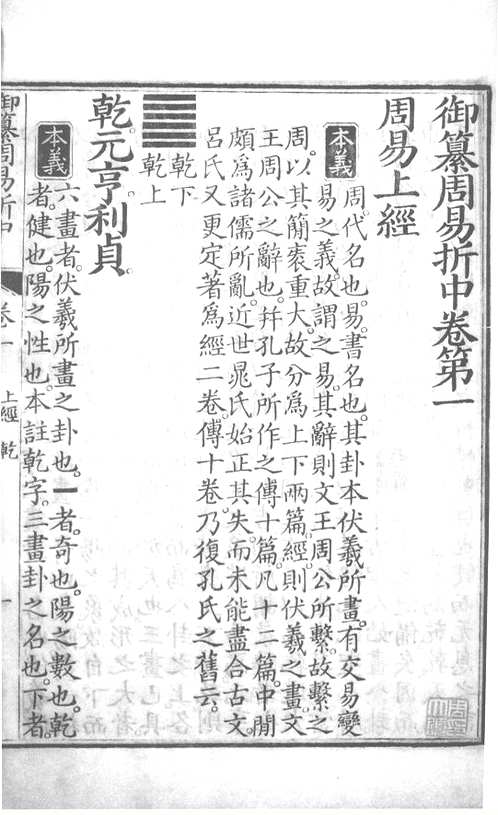 御纂周易折中卷第一
周易上經
本義
周。代名也。易。書名也。其卦本伏羲所畫。有交易變
易之義。故謂之易。其辭則文王周公所繫。故繫之
周。以其簡袠重大。故分為上下兩篇。經。則伏羲之畫。文
王周公之辭也。幷孔子所作之傳十篇。凡十二篇。中閒
頗為諸儒所亂。近世晁氏始正其失。而未能盡合古文。
呂氏又更定著為經二卷。傳十卷。乃復孔氏之舊云。
乾下
乾上
乾。元亨利貞。
本義
六畫者。伏羲所畫之卦也。一者。奇也。陽之數也。乾
者。健也。陽之性也。本註乾字。三畫卦之名也。下者。
御纂周易折中
卷一
上經 乾
一